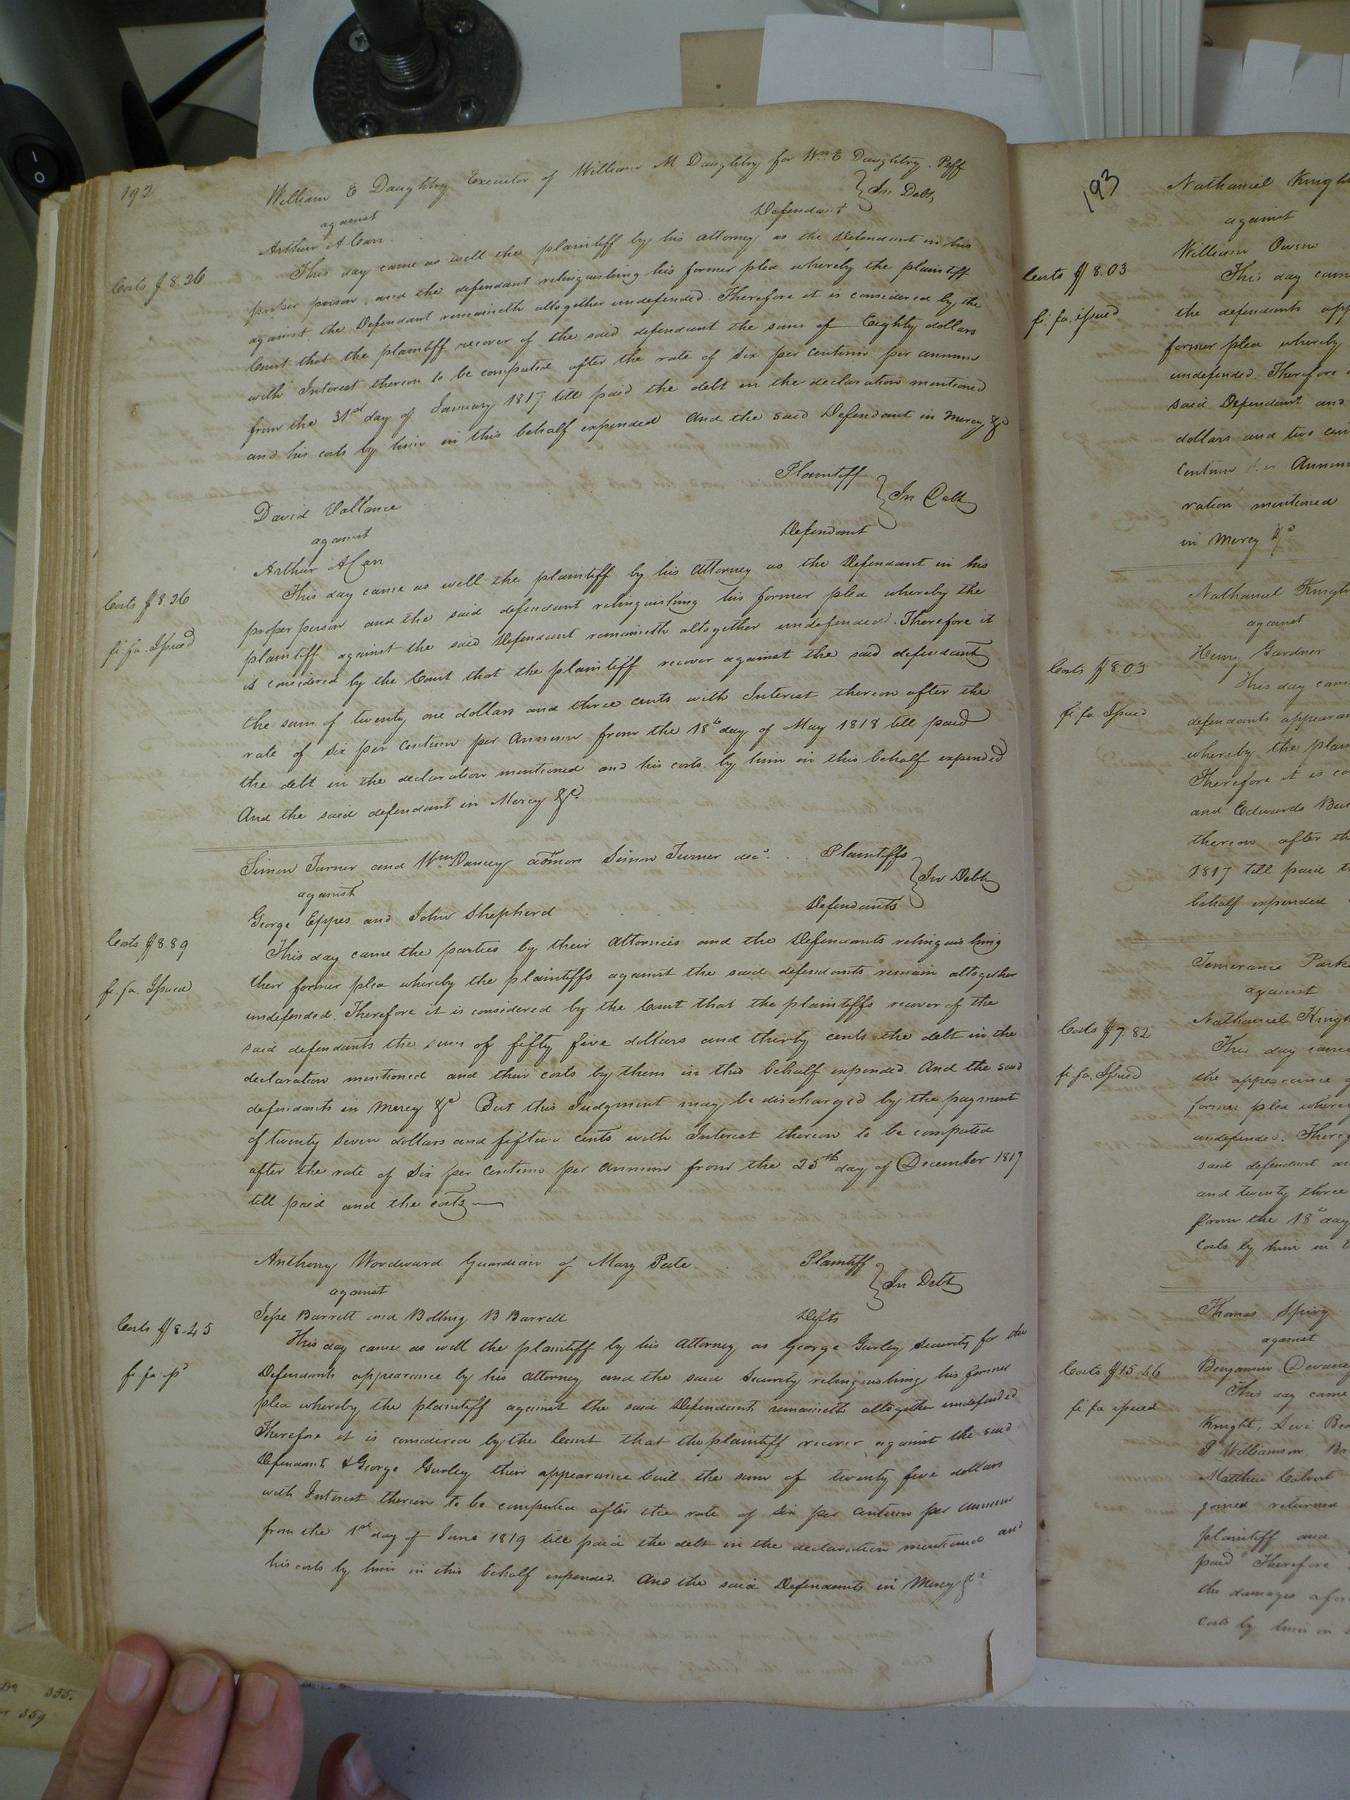 192
William E Daughtry Executor of William M Daughtry for Wm E Daughtry. Peff
against
Defendant } In Debt,
Arthur A Carr
Costs $ 8.26
This day came as well the plaintiff by his attorney as the Defendant in his
proper person and the defendant relinquishing his former plea whereby the plaintiff
against the Defendant remaineth altogether undefended. Therefore it is considered by the
Court that the plaintiff recover of the said defendant the sum of Eighty dollars
with Interest thereon to be computed after the rate of six per centum per annum
from the 31st day of January 1817 till paid the debt in the declaration mentioned
and his costs by him in this behalf expended And the said Defendant in Mercy &c
David Vallance
Plaintiff } In Debt
against
Defendant
Arthur A Carr
Costs $ 8.26
fi. fa. Issued
This day came as well the plaintiff by his Attorney as the Defendant in his
proper person and the said defendant relinquishing his former plea whereby the
plaintiff against the said Defendant remaineth altogether undefended. Therefore it
is considered by the Court that the plaintiff recover against the said defendant
the sum of twenty one dollars and three cents with Interest thereon after the
rate of six per centum per annum from the 18th day of May 1818 till paid
the debt in the declaration mentioned and his costs by him in this behalf expended
And the said defendant in Mercy &c
Simon Turner and Wm Dancey admors Simon Turner decd. Plaintiffs
against } In Debt
George Eppes and John Shepherd Defendants
Costs $ 8.89
fi. fa. Issued
This day came the parties by their Attornies and the Defendants relinquishing
their former plea whereby the plaintiffs against the said defendants remain altogether
undefended. Therefore it is considered by the Court that the plaintiffs recover of the
said defendants the sum of fifty five dollars and thirty cents the debt in the
declaration mentioned and their costs by them in this behalf expended. And the said
defendants in Mercy &c But this Judgment may be discharged by the payment
of twenty seven dollars and fifteen cents with Interest thereon to be computed
after the rate of six per centum per annum from the 25th day of December 1817
till paid and the costs
Anthony Woodward Guardian of Mary Pete Plaintiff
against } In Debt
Jesse Barrett and Bolling B Barrett Defts
Costs $ 8.45
fi. fa.
This day came as well the plaintiff by his Attorney as George Gurley Security for the
Defendants appearance by his attorney and the said Security relinquishing his former
plea whereby the plaintiff against the said Defendants remaineth altogether undefended
Therefore it is considered by the Court that the plaintiff recover against the said
Defendants & George Gurley their appearance bail the sum of twenty five dollars
with Interest thereon to be computed after the rate of six per centum per annum
from the 1st day of June 1819 till paid the debt in the declaration mentioned and
his costs by him in this behalf expended. And the said Defendants in Mercy &c
193
Nathaniel Knight
against
William Owens
Costs $ 8.03
fi. fa. issued
This day cam
the defendants app
former plea whereby
undefended. Therefore
said Defendant and
dollars and two cen
Centum per Annum
ration mentioned
in Mercy &c
Nathaniel Knight
against
Henry Gardner
Costs $ 8.03
fi. fa. Issued
This day cam
defendants appearan
whereby the plain
Therefore it is co
and Edwards
thereon after th
1817 till paid t
behalf expended
Temerance Park
against
Nathaniel Knigh
Costs $ 7.82
fi. fa. Issued
This day came
the appearance
former plea where
undefended. There
said defendant a
and twenty three
from the 18th day
costs by him in t
Thomas Spivy
against
Benjamin
Costs $ 15.46
fi fa issued
This day came
Knight, Levi
Williamson,
Matthew
joined returned
plaintiff and
paid Therefore
the damages afor
costs by him in
355.
359